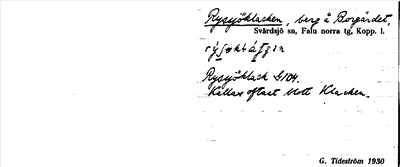 Rysjöklacken, berg å Borgärdet,
Svärdsjö sn, Falu norra tg, Kopp. l.
Rysjöklack
Kallas oftast blott Klacken.
G. Tideström 1930